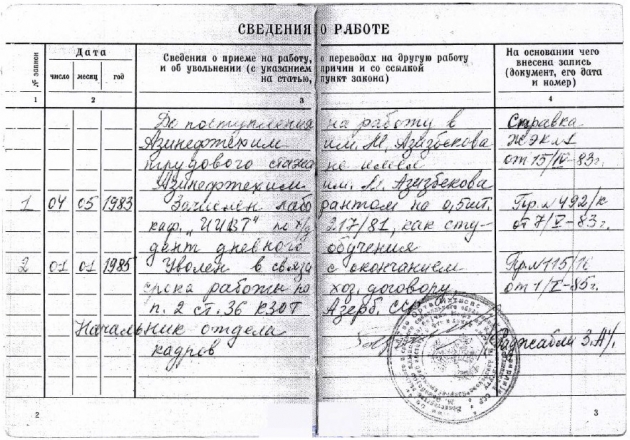 СВЕДЕНИЯ О РАБОТЕ
№ записи
Дата
Сведения о приеме на работу, о переводах на другую работу
и об увольнении (с указанием причин и со ссылкой
на статью, пункт закона)
На основании чего
внесена запись
(документ, его дата
и номер)
число месяц год
1 2 3 4
До поступления на работу в Справка
Азинефтехим им. М. Азизбекова ЖЭК №1
трудового стажа не имел от 15/IV-83г.
Азинефтехим им. М. Азизбекова
1 04 05 1983 Зачислен лаборантом на 0,5 шт. Пр. № 492/к
каф. "ИИВТ" по х/д 217/81, как сту- от 7/V-83г.
дент дневного обучения
2 01 01 1985 Уволен в связи с окончанием Пр. № 115/
срока работы по хоз. договору, от 1/I-85г.
п. 2 ст. 36 КЗОТ Азерб. ССР
Начальник отдела Раджабли З.А.
кадров
2 3